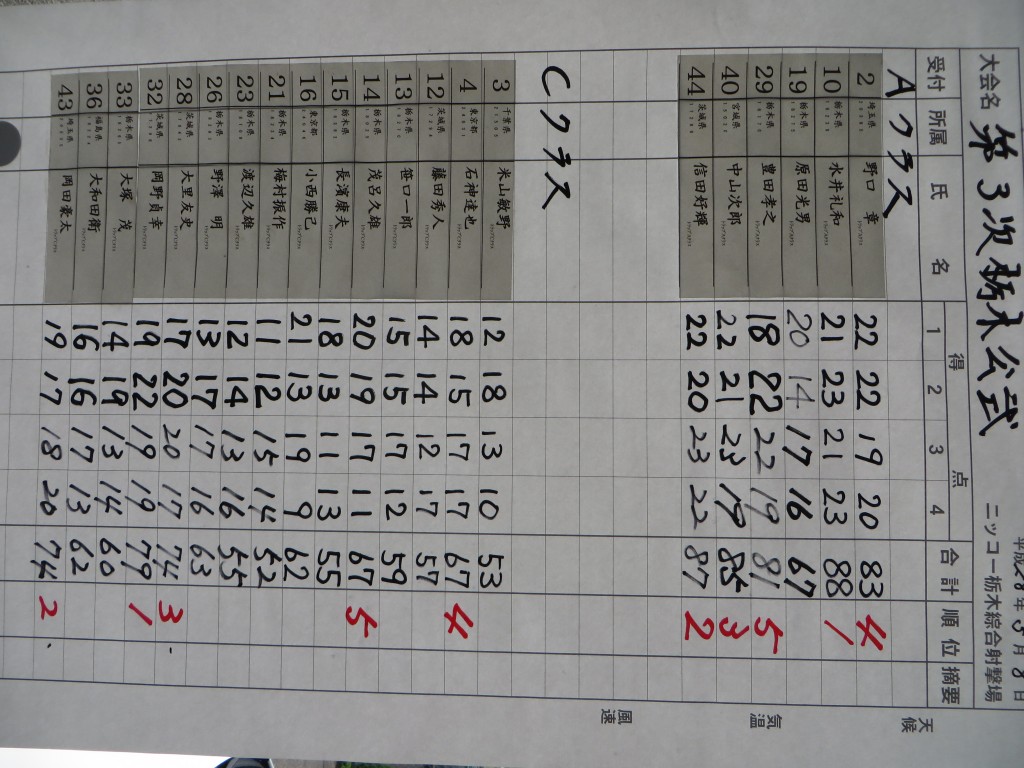 大会名 第3次栃木公式
平成28年5月8日
ニッコー栃木綜合射撃場
天候
気温
風速
受付 所属 氏名 得点 合計 順位 摘要
1 2 3 4
Aクラス
2 埼玉県 野口 章 22 22 19 20 83 4
10 栃木県 水井礼和 21 23 21 23 88 1
19 栃木県 原田光男 20 14 17 16 67
29 栃木県 豊田孝之 18 22 22 19 81 5
40 宮城県 中山次郎 22 21 23 19 85 3
44 茨城県 信田好輝 22 20 23 22 87 2
Cクラス
3 千葉県 米山敏野 12 18 13 10 53
4 東京都 石神達也 18 15 17 17 67 4
12 茨城県 藤田秀人 14 14 12 17 57
13 栃木県 笹口一郎 15 15 17 12 59
14 栃木県 茂呂久雄 20 19 17 11 67 5
15 栃木県 長濱康夫 18 13 11 13 55
16 東京都 小西勝己 21 13 19 9 62
21 栃木県 梅村振作 11 12 15 14 52
23 栃木県 渡辺久雄 12 14 13 16 55
26 栃木県 野澤 明 13 17 17 16 63
28 茨城県 大里友史 17 20 20 17 74 3
32 茨城県 岡野貞幸 19 22 19 19 79 1
33 栃木県 大塚 茂 14 19 13 14 60
36 福島県 大和田衛 16 16 17 13 62
43 埼玉県 岡田豪太 19 17 18 20 74 2